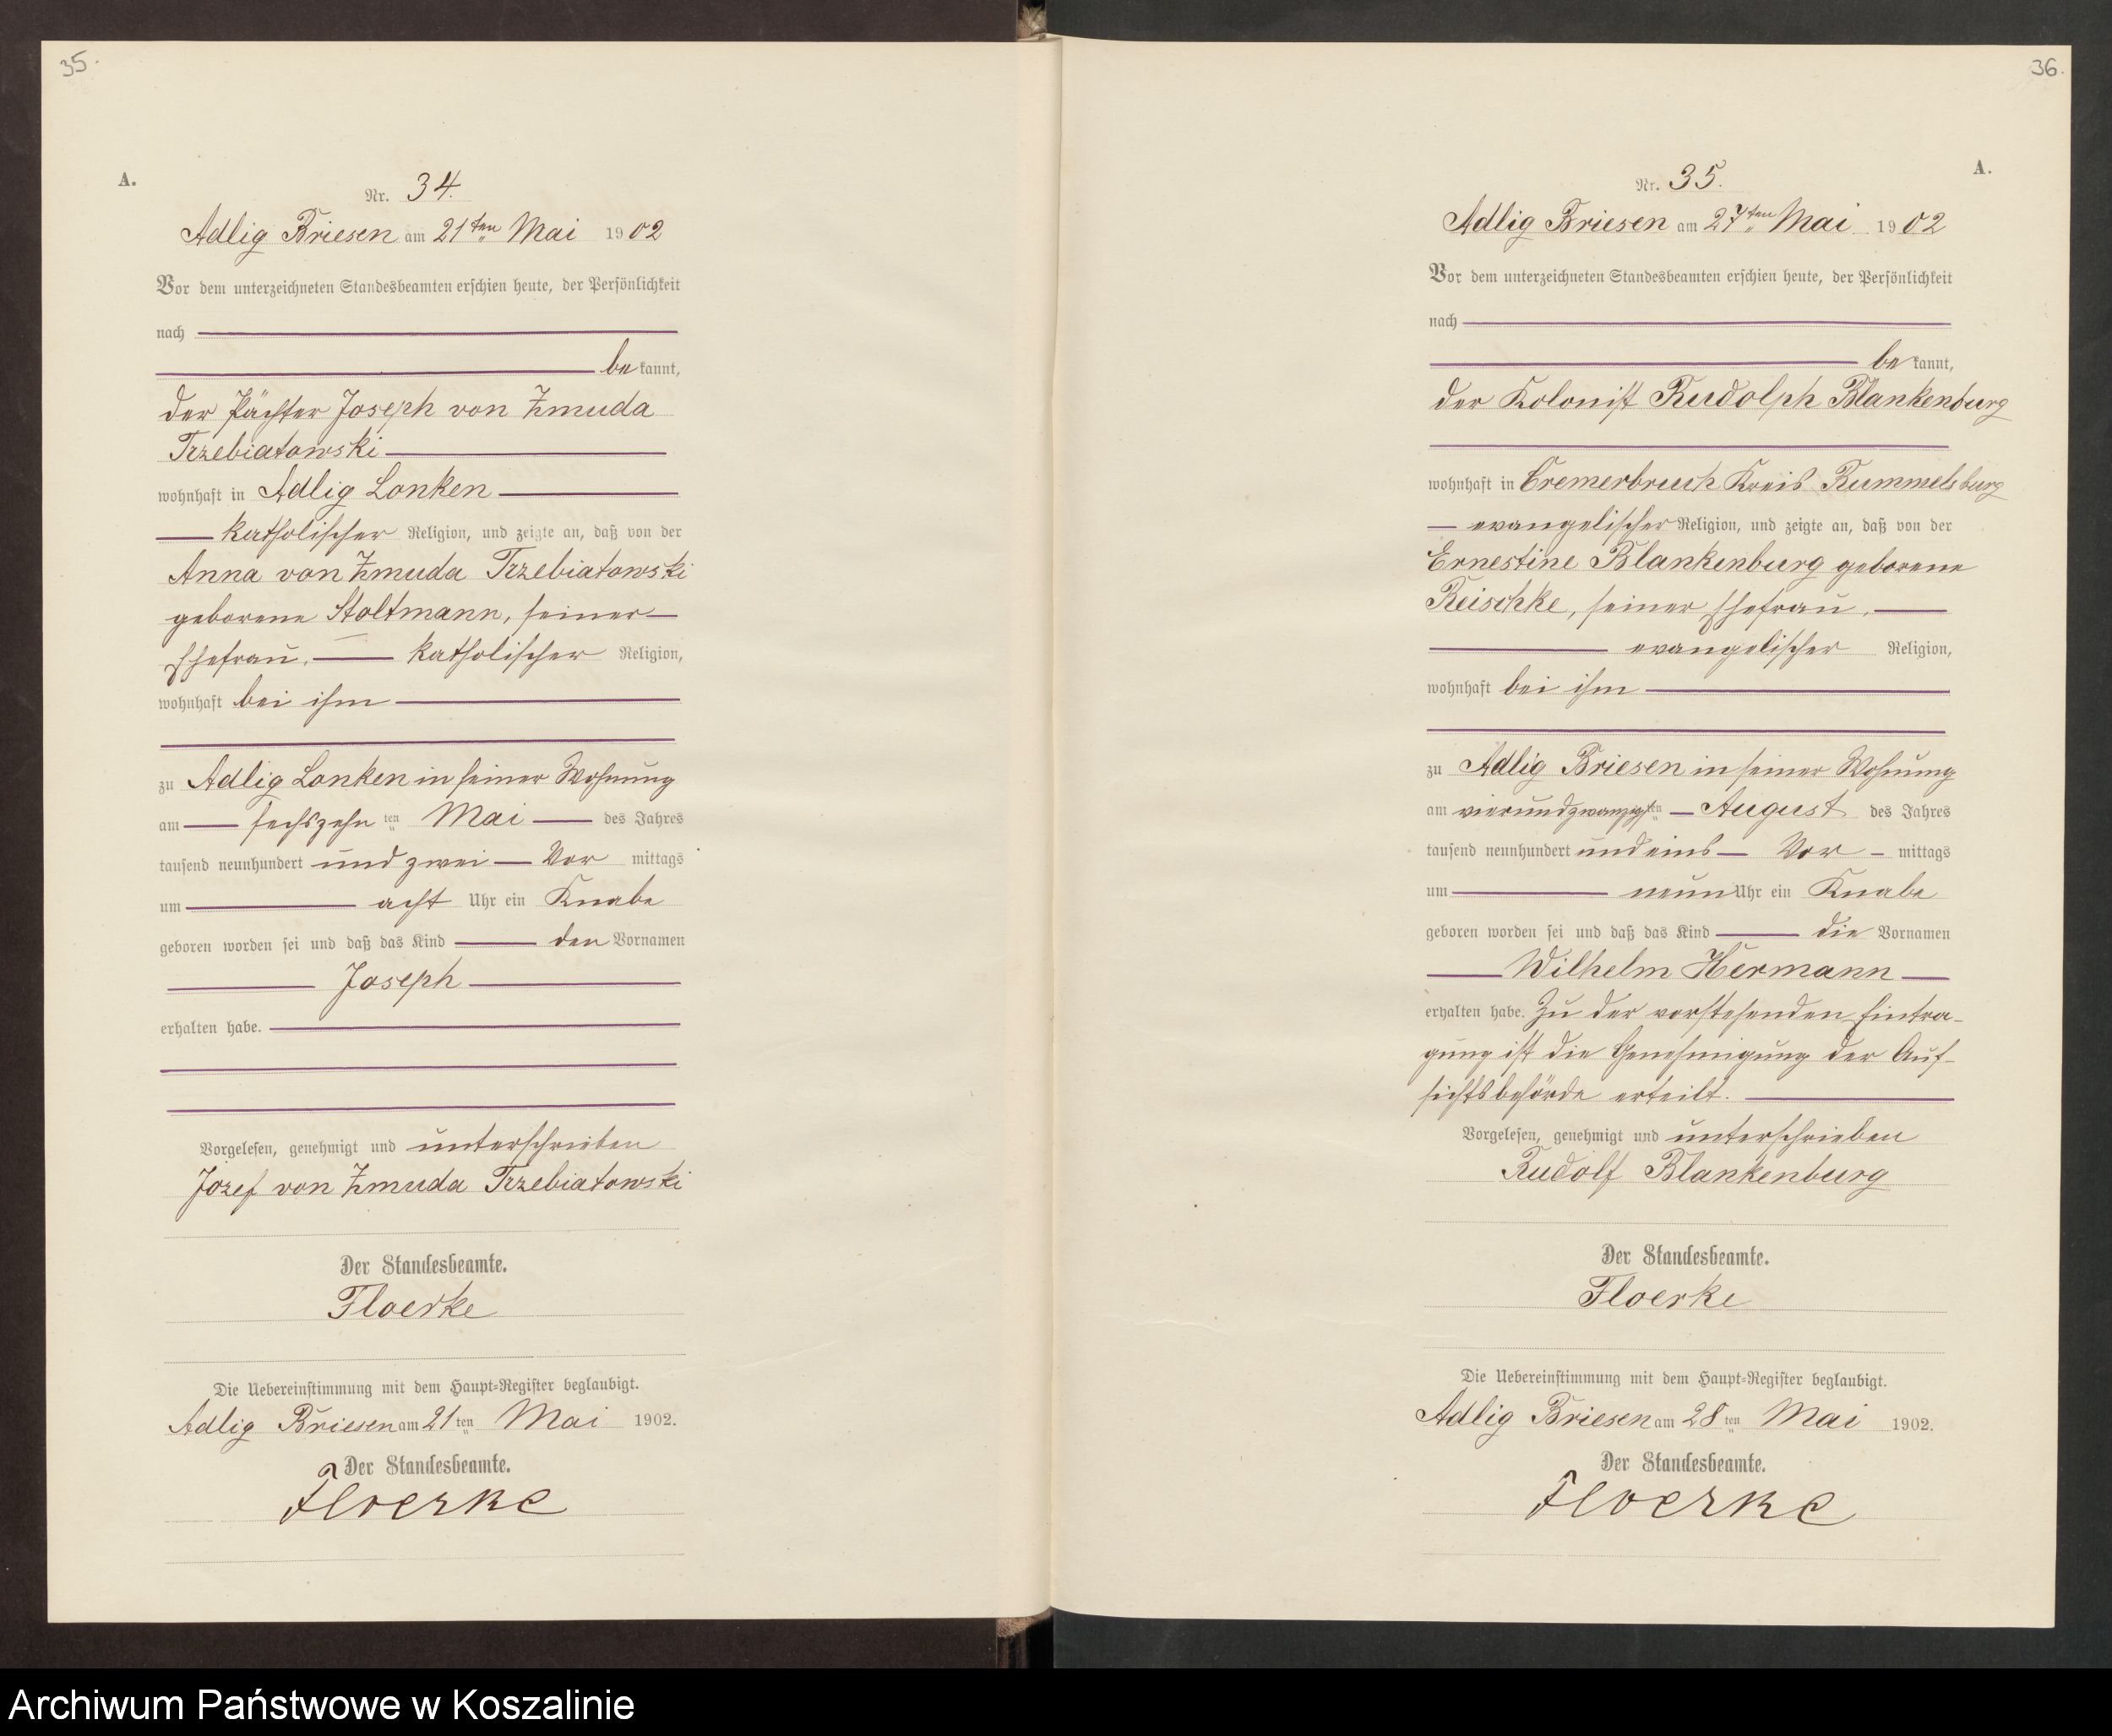 35.
A.
Nr. 34.
Adlig Briesen am 21ten Mai 1902
Vor dem unterzeichneten Standesbeamten erschien heute, der Persönlichkeit
nach
bekannt,
der Pächter Joseph von Zmuda
Trzebiatowski
wohnhaft in Adlig Lonken
katholischer Religion, und zeigte an, daß von der
Anna von Zmuda Trzebiatowski
geborene Stoltmann, seiner
Ehefrau, katholischer Religion,
wohnhaft bei ihm
zu Adlig Lonken in seiner Wohnung
am sechszehnten Mai des Jahres
tausend neunhundert und zwei Vor mittags
um acht Uhr ein Knabe
geboren worden sei und daß das Kind den Vornamen
Joseph
erhalten habe.
Vorgelesen, genehmigt und unterschrieben
Józef von Zmuda Trzebiatowski
Der Standesbeamte.
Floerke
Die Uebereinstimmung mit dem Haupt=Register beglaubigt.
Adlig Briesen am 21ten Mai 1902.
Der Standesbeamte.
Floerke
36.
A.
Nr. 35.
Adlig Briesen am 27ten Mai 1902
Vor dem unterzeichneten Standesbeamten erschien heute, der Persönlichkeit
nach
bekannt,
der Kolonist Rudolph Blankenburg
wohnhaft in Cremerbruch Kreis Rummelsburg
evangelischer Religion, und zeigte an, daß von der
Ernestine Blankenburg geborene
Reischke, seiner Ehefrau,
evangelischer Religion,
wohnhaft bei ihm
zu Adlig Briesen in seiner Wohnung
am vierundzwanzigsten August des Jahres
tausend neunhundert und eins Vor mittags
um neun Uhr ein Knabe
geboren worden sei und daß das Kind die Vornamen
Wilhelm Hermann
erhalten habe. Zu der vorstehenden Eintra-
gung ist die Genehmigung der Auf-
sichtsbehörde erteilt.
Vorgelesen, genehmigt und unterschrieben
Rudolf Blankenburg
Der Standesbeamte.
Floerke
Die Uebereinstimmung mit dem Haupt=Register beglaubigt.
Adlig Briesen am 28ten Mai 1902.
Der Standesbeamte.
Floerke
Archiwum Państwowe w Koszalinie